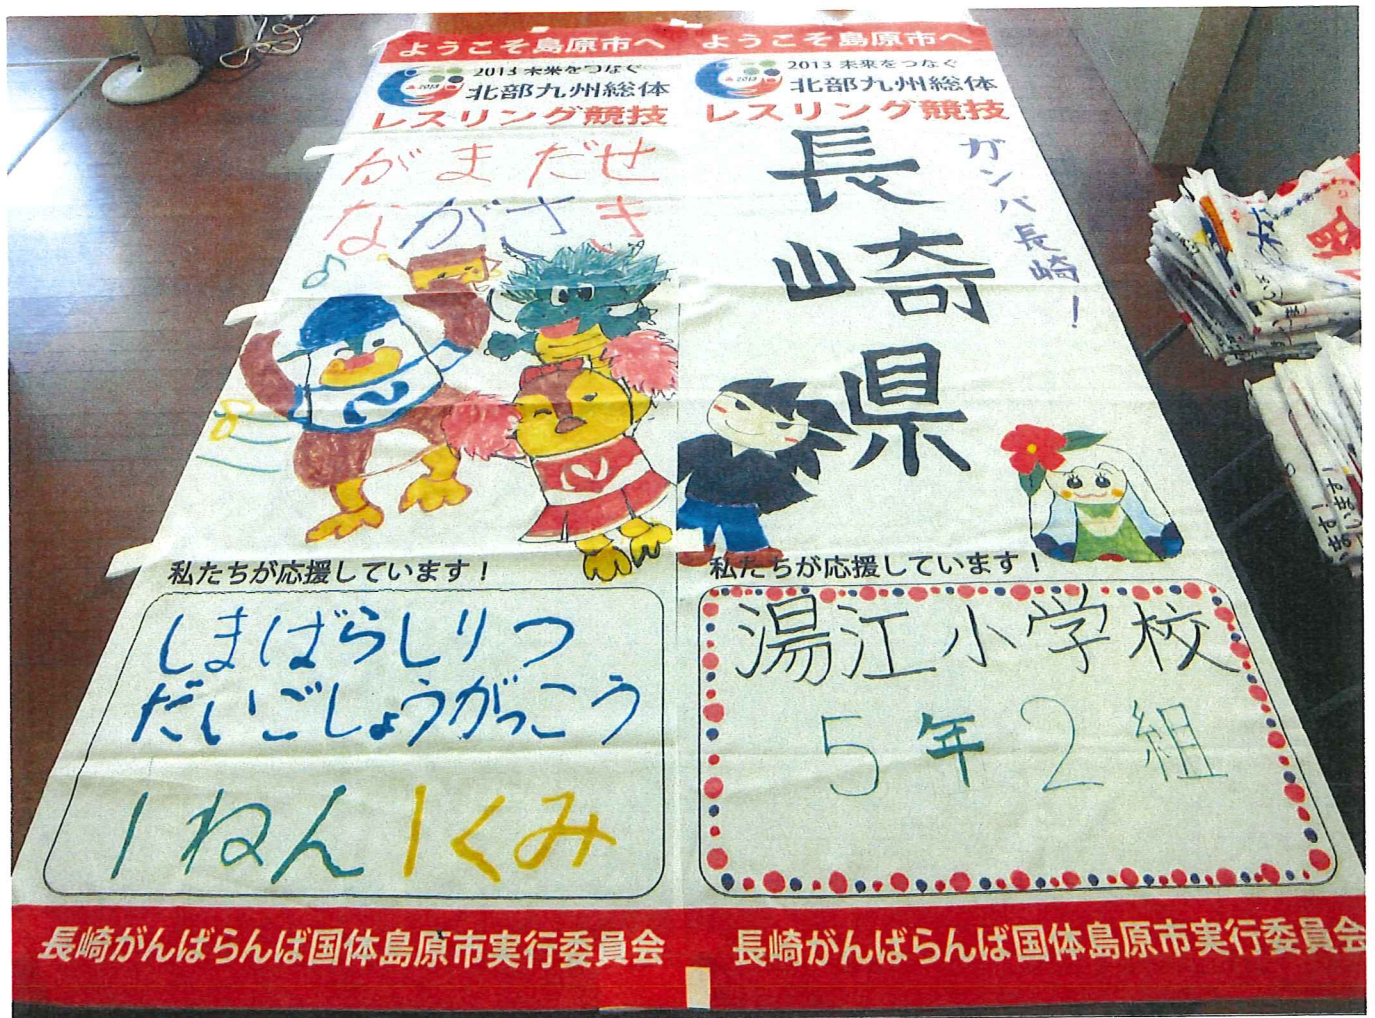 ようこそ島原市へ
2013
2013 未来をつなぐ
北部九州総体
レスリング競技
がまだせ
ながさき
私たちが応援しています!
しまばらしりつ
だいごしょうがっこう
1ねん1くみ
長崎がんばらんば国体島原市実行委員会
ようこそ島原市へ
2013
2013 未来をつなぐ
北部九州総体
レスリング競技
長崎県
ガンバ長崎!
私たちが応援しています!
湯江小学校
5年2組
長崎がんばらんば国体島原市実行委員会